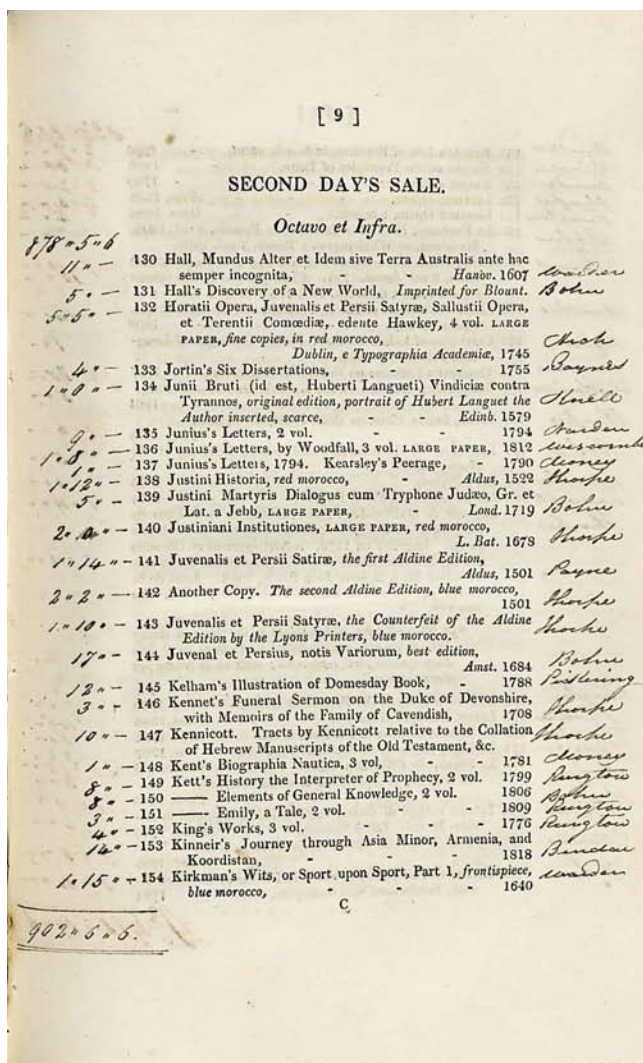 [ 9 ]
SECOND DAY'S SALE.
Octavo et Infra.
878 " 5 " 6
11 " — 130 Hall, Mundus Alter et Idem sive Terra Australis ante hac
semper incognita, - - Hanov. 1607 Warder
5 " — 131 Hall's Discovery of a New World, Imprinted for Blount. Bohn
5 " 5 " — 132 Horatii Opera, Juvenalis et Persii Satyræ, Sallustii Opera,
et Terentii Comœdiæ, edente Hawkey, 4 vol. LARGE
PAPER, fine copies, in red morocco,
Dublin, e Typographia Academiæ, 1745
4 " — 133 Jortin's Six Dissertations, - - 1755 Baynes
1 " 0 " — 134 Junii Bruti (id est, Huberti Langueti) Vindiciæ contra
Tyrannos, original edition, portrait of Hubert Languet the
Author inserted, scarce, - - Edinb. 1579
9 " — 135 Junius's Letters, 2 vol. - 1794
1 " 8 " — 136 Junius's Letters, by Woodfall, 3 vol. LARGE PAPER, 1812
1 " — 137 Junius's Letters, 1794. Kearsley's Peerage, - 1790 Money
1 " 12 " — 138 Justini Historia, red morocco, - Aldus, 1522 Thorpe
5 " — 139 Justini Martyris Dialogus cum Tryphone Judæo, Gr. et
Lat. a Jebb, LARGE PAPER, - Lond. 1719 Bohn
2 " — 140 Justiniani Institutiones, LARGE PAPER, red morocco,
L. Bat. 1678 Thorpe
1 " 14 " — 141 Juvenalis et Persii Satiræ, the first Aldine Edition,
Aldus, 1501 Payne
2 " 2 " — 142 Another Copy. The second Aldine Edition, blue morocco,
1501 Thorpe
1 " 10 " — 143 Juvenalis et Persii Satyræ, the Counterfeit of the Aldine
Edition by the Lyons Printers, blue morocco. Thorpe
17 " — 144 Juvenal et Persius, notis Variorum, best edition,
Amst. 1684 Bohn
12 " — 145 Kelham's Illustration of Domesday Book, - 1788 Pickering
3 " — 146 Kennet's Funeral Sermon on the Duke of Devonshire,
with Memoirs of the Family of Cavendish, 1708 Thorpe
10 " — 147 Kennicott. Tracts by Kennicott relative to the Collation
of Hebrew Manuscripts of the Old Testament, &c. Thorpe
1 " — 148 Kent's Biographia Nautica, 3 vol, - - 1781 Money
8 " — 149 Kett's History the Interpreter of Prophecy, 2 vol. 1799 Rington
8 " — 150 —— Elements of General Knowledge, 2 vol. 1806 Bohn
3 " — 151 —— Emily, a Tale, 2 vol. - - 1809 Rington
4 " — 152 King's Works, 3 vol. - - 1776 Rington
14 " — 153 Kinneir's Journey through Asia Minor, Armenia, and
Koordistan, - - - - 1818
1 " 15 " — 154 Kirkman's Wits, or Sport upon Sport, Part 1, frontispiece,
blue morocco, - - - 1640 Warder
C
902 " 6 " 6.